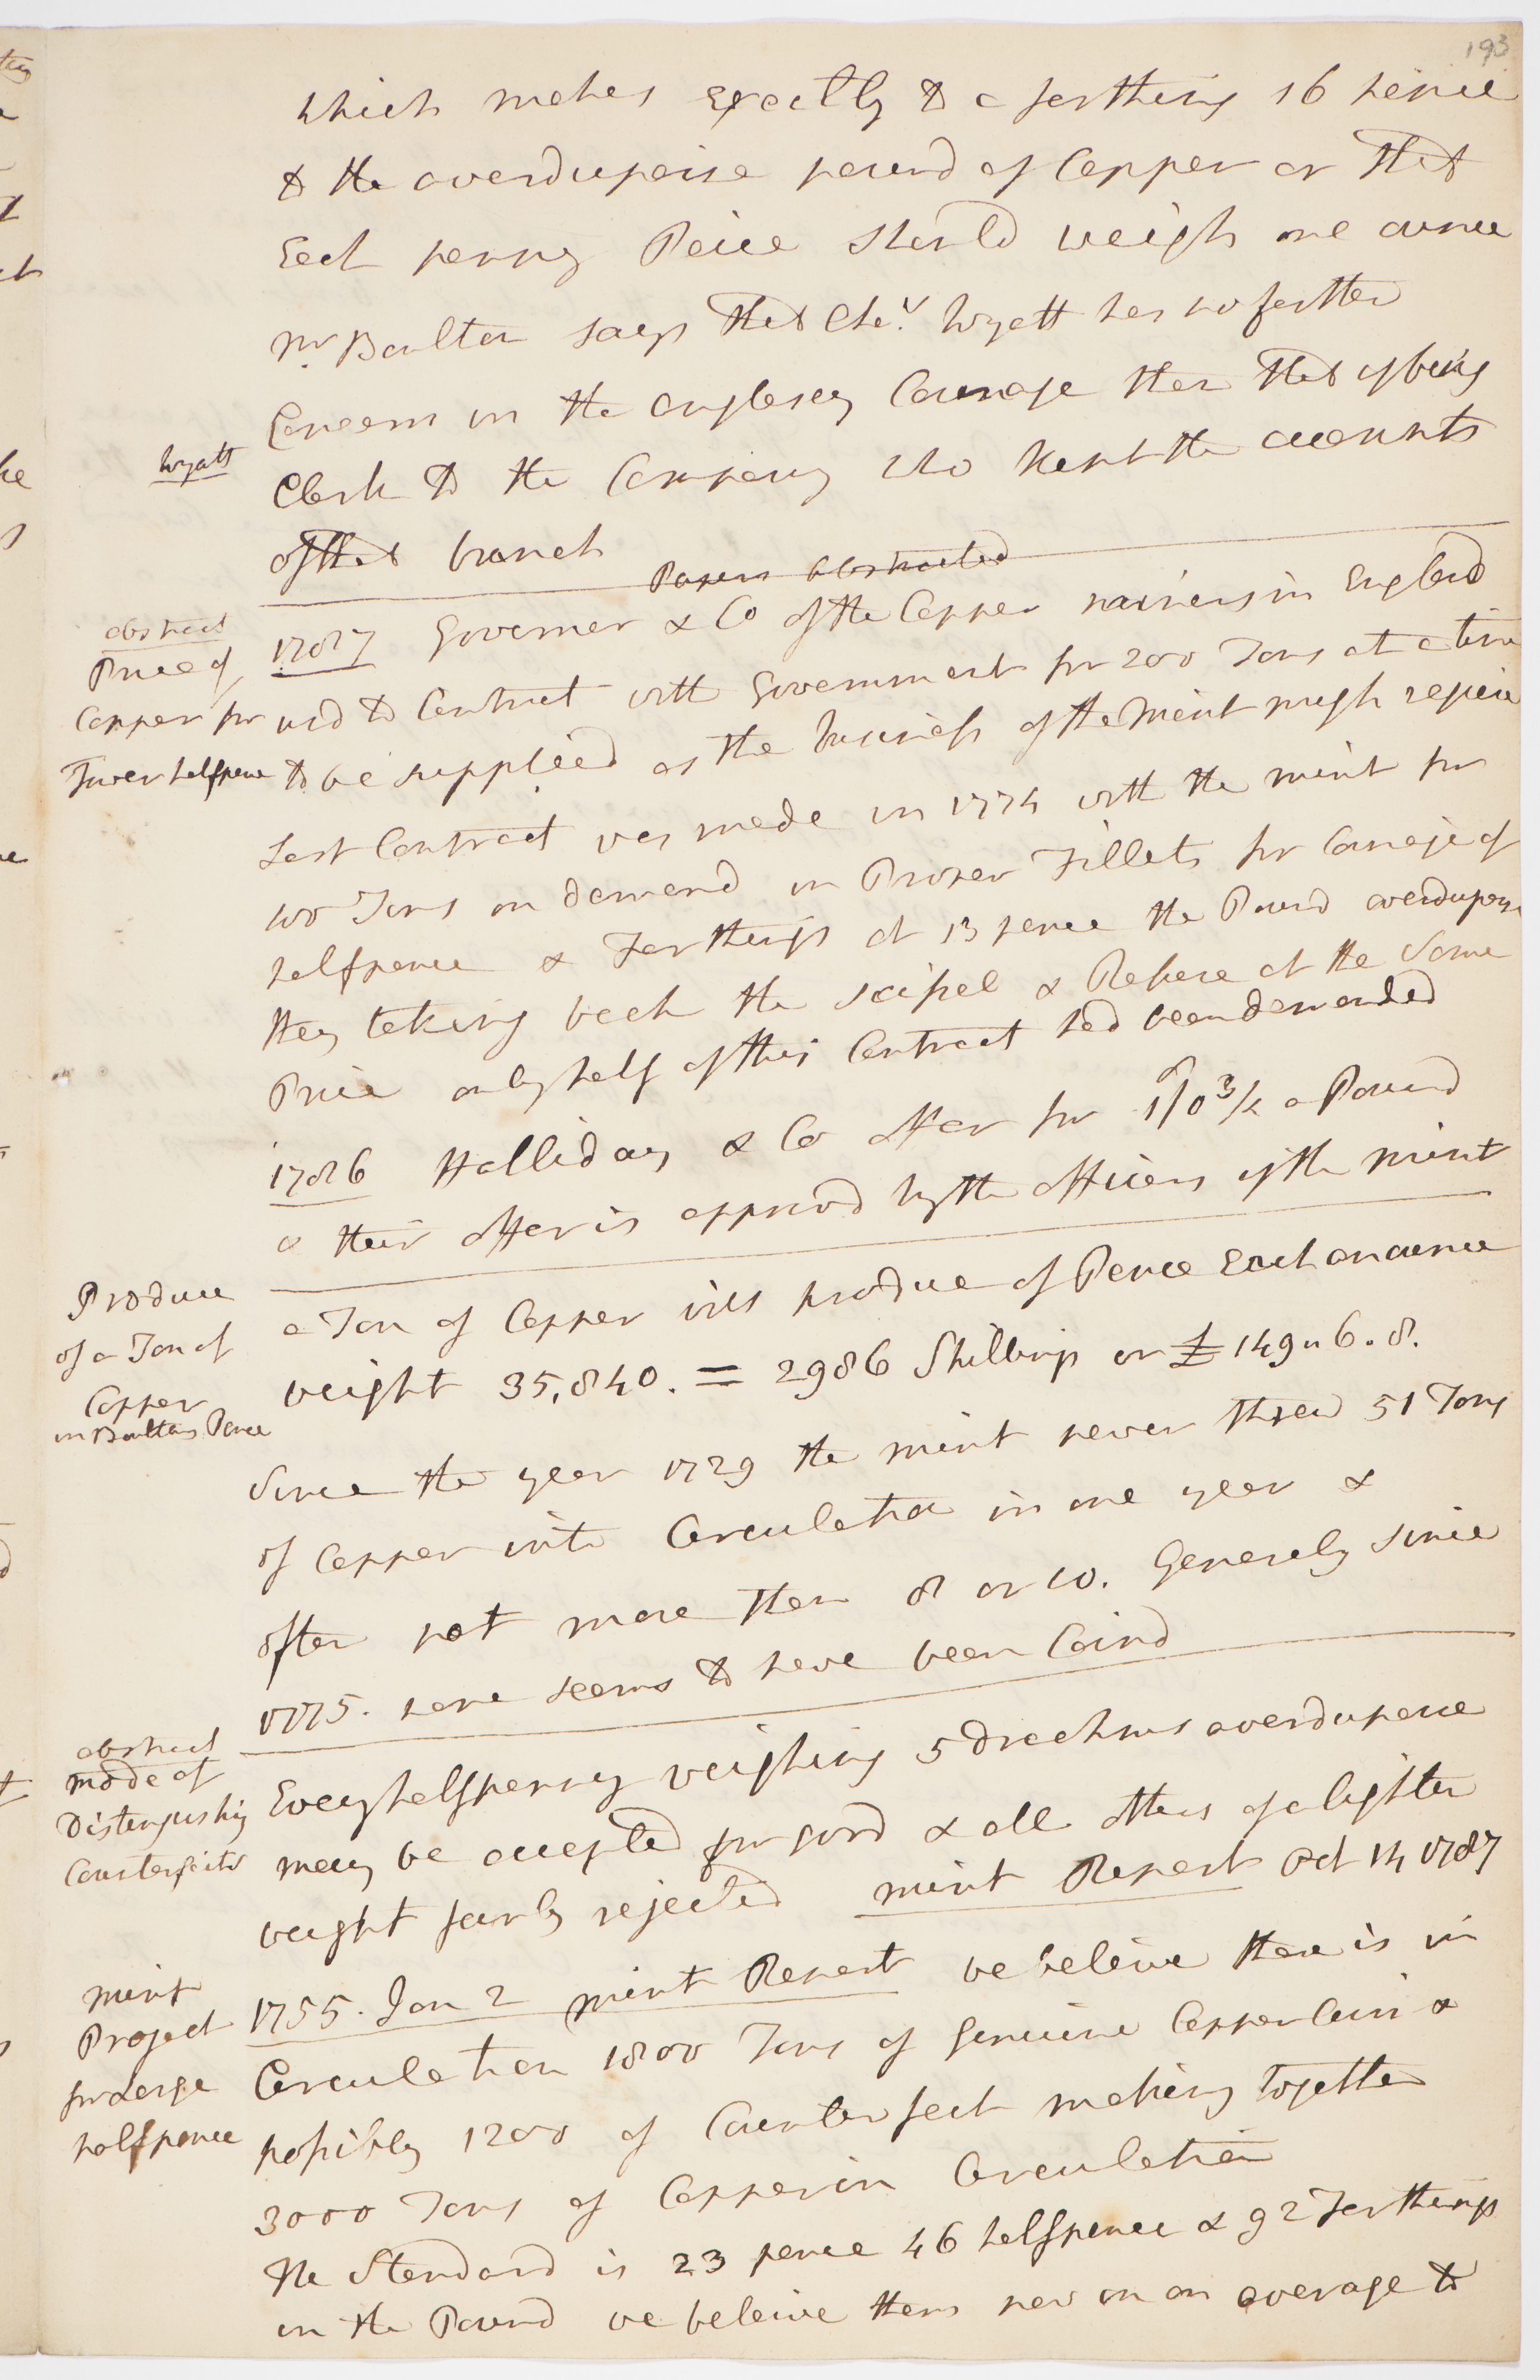 193
which makes Exactly to a farthing 16 pence
to the averdupoise pound of Copper or that
Each penny Peice should weigh one ounce
Mr Boulton says that Cha.s Wyatt has no farther
Concern in the anglesey Coinage than that of being
Wyatt
Clerk to the Company who kept the accounts
of that branch
Papers abstracted
abstract
1787 Governer & Co of the Copper mines in England
Price of
Copper for
usd to Contract with Government for 200 Tons at a time
Tower halfpence
to be supplied as the business of the Mint might require
Last Contract was made in 1774 with the mint for
100 Tons on demand in Proper Fillets for Coinage of
halfpence & Farthings at 13 pence the Pound averdupoise
they taking back the scissel & Refuse at the Same
Price only half of this Contract had been demanded
1786 Halliday & Co offer for 1/0 3/4 a Pound
& their offer is approvd by the officers of the mint
Produce
of a Ton of
Copper
in Boultons Pence
a Ton of Copper will produce of Pence Each an ounce
weight 35,840. = 2986 Shillings or £149 " 6 . 8.
Since the year 1729 the mint never threw 51 Tons
of Copper into Circulation in one year &
often not more than 8 or 10. Generaly since
1775. none seems to have been Coind
abstract
mode of
Distinguishing
Counterfeits
Every halfpenny weighing 5 drachms averdupoise
may be accepted for good & all others of a lighter
weight fairly rejected mint Report Oct 14 1787
mint
Project
for Large
halfpence
1755. Jan 2 mint Report we beleive there is in
Circulation 1800 Tons of Genuine Copper Coin &
possibly 1200 of Counterfeit making together
3000 Tons of Copper in Circulation
The Standard is 23 pence 46 halfpence & 92 Farthings
in the Pound we beleive them now on an average to